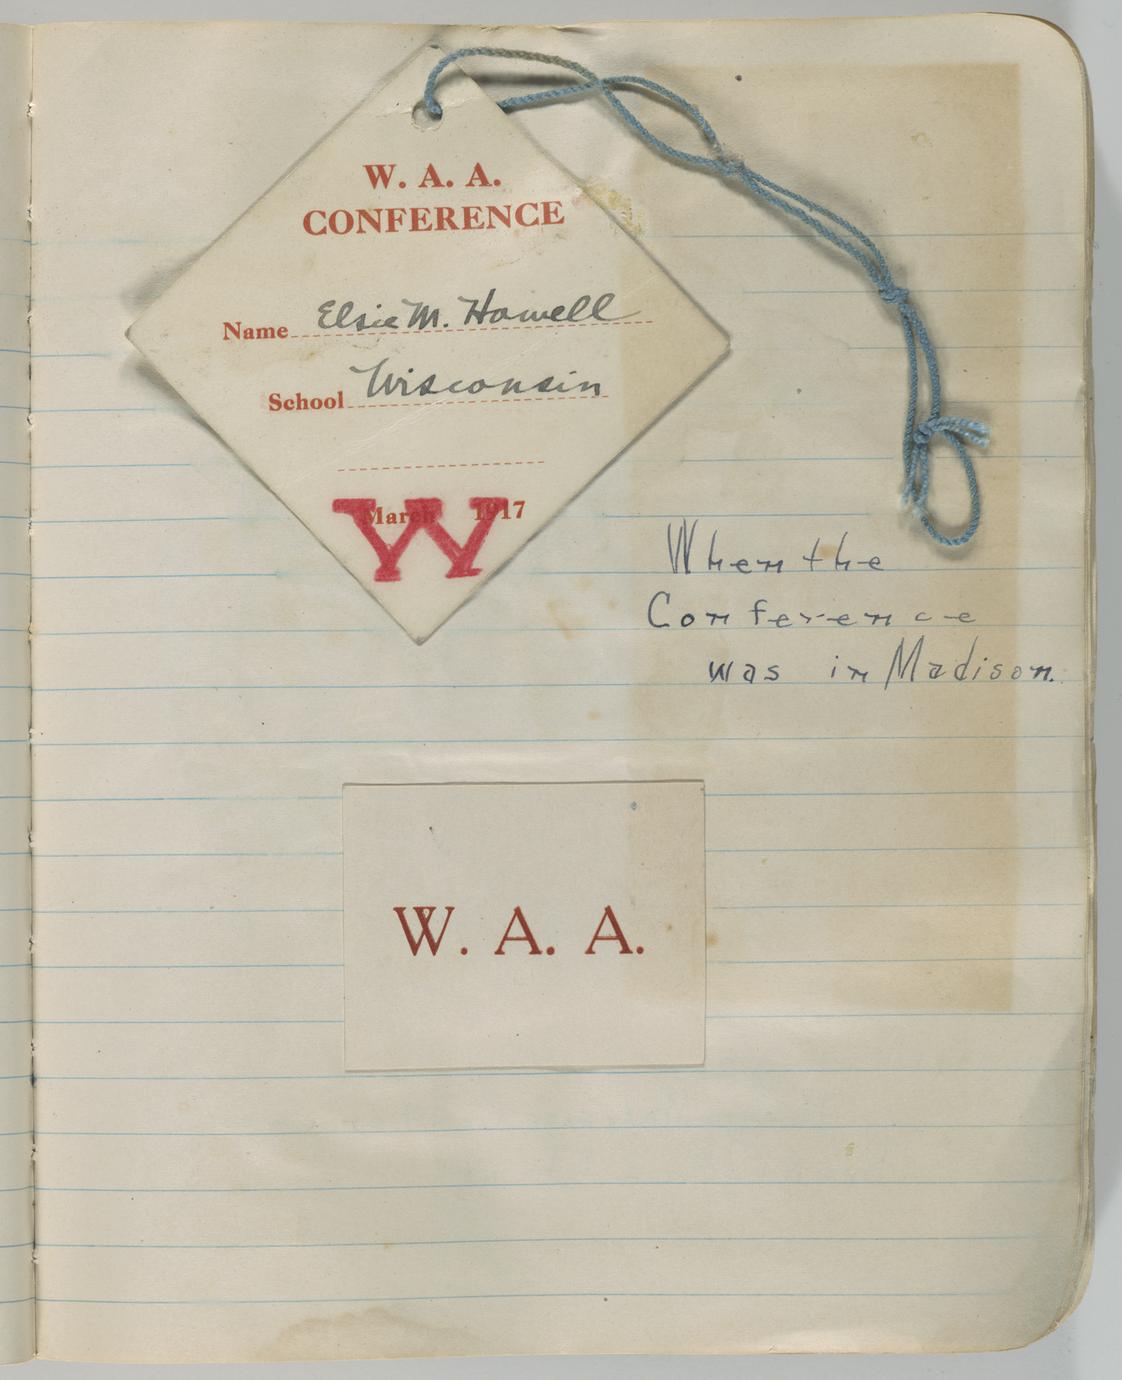 W. A. A.
CONFERENCE
Name Elsie M. Howell
School Wisconsin
March 1917
W
When the
Conference
was in Madison.
W. A. A.